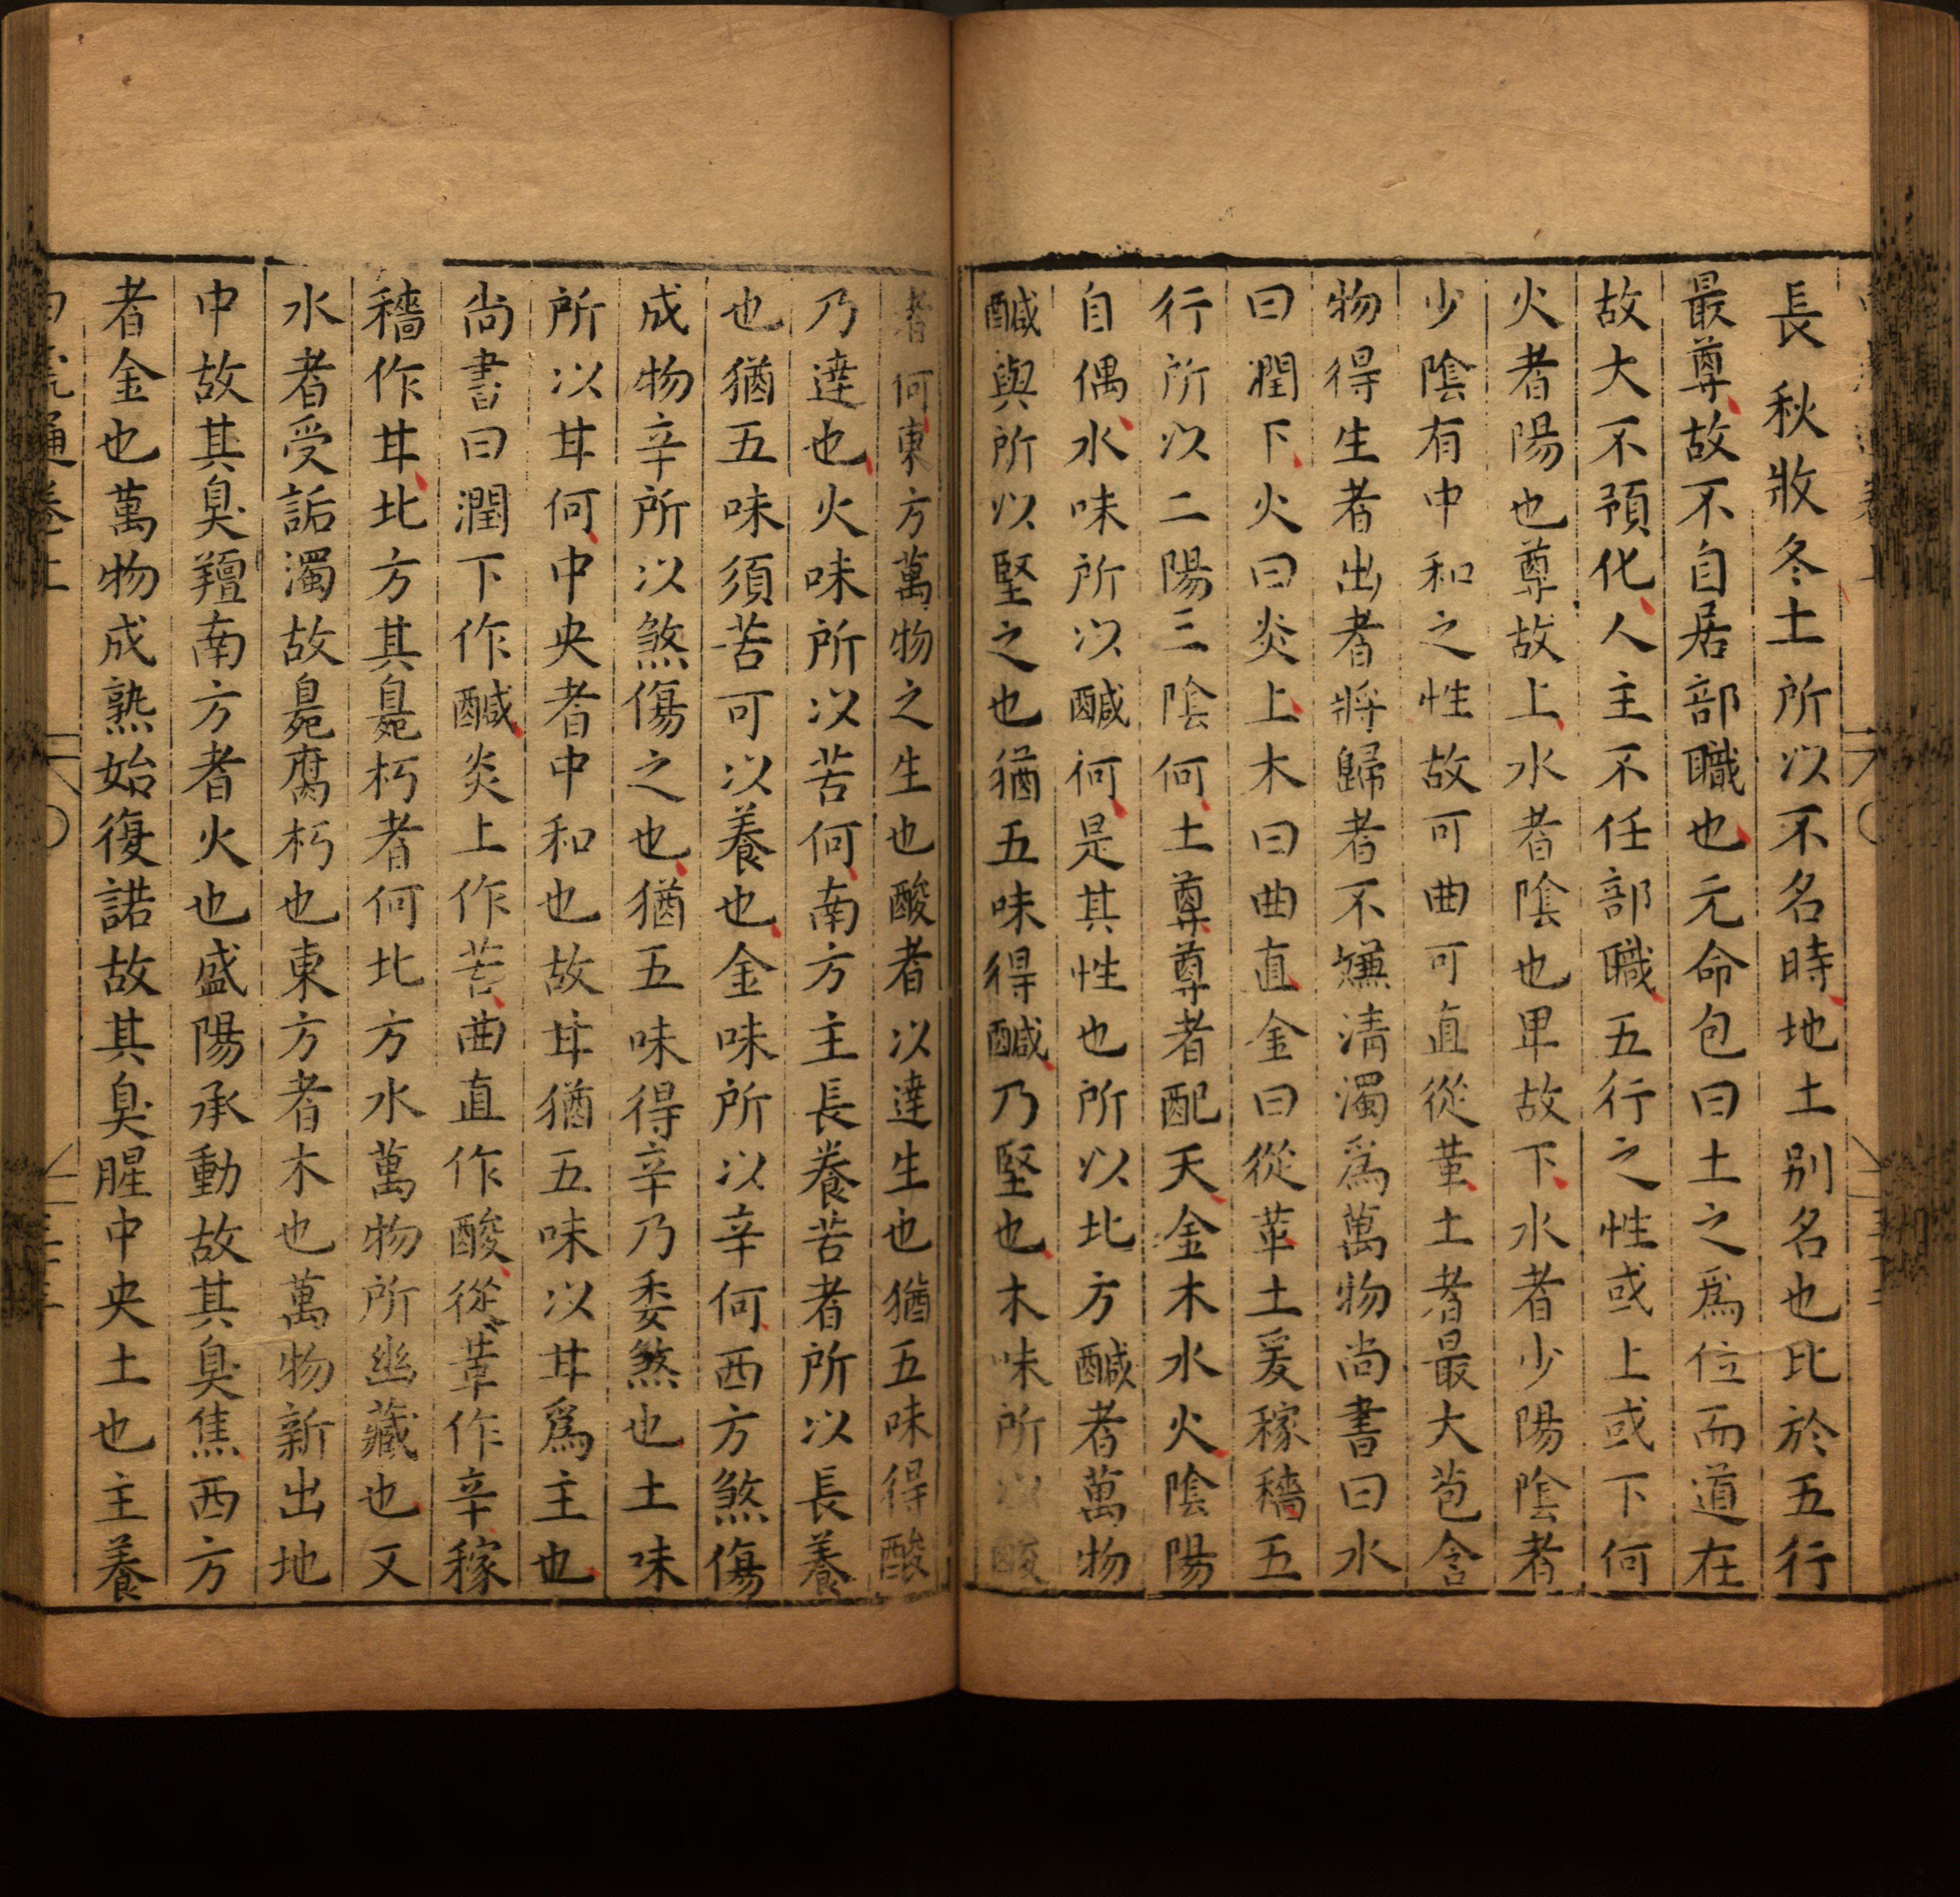 長秋收冬土所以不名時地土别名也比於五行
最尊故不自居部職也元命包曰土之爲位而道在
故大不預化人主不任部職五行之性或上或下何
火者陽也尊故上水者陰也卑故下水者少陽陰者
少陰有中和之性故可曲可直從革土者最大苞含
物得生者出者將歸者不嫌清濁爲萬物尚書曰水
曰潤下火曰炎上木曰曲直金曰從革土爰稼穡五
行所以二陽三陰何土尊尊者配天金木水火陰陽
自偶水味所以鹹何是其性也所以北方鹹者萬物
鹹與所以堅之也猶五味得鹹乃堅也木味所以酸
者何東方萬物之生也酸者以達生也猶五味得酸
乃達也火味所以苦何南方主長養苦者所以長養
也猶五味須苦可以養也金味所以辛何西方煞傷
成物辛所以煞傷之也猶五味得辛乃委煞也土味
所以甘何中央者中和也故甘猶五味以甘爲主也
尚書曰潤下作鹹炎上作苦曲直作酸從革作辛稼
穡作甘北方其臭朽者何北方水萬物所幽藏也又
水者受垢濁故臭腐朽也東方者木也萬物新出地
中故其臭羶南方者火也盛陽承動故其臭焦西方
者金也萬物成熟始復諾故其臭腥中央土也主養
白虎通卷上